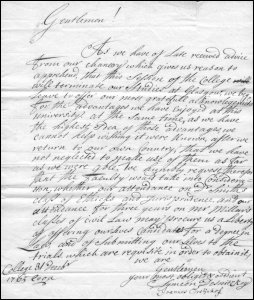 Gentlemen!
As we have of late received advice
from our chancry which gives us reason to
apprehend that this Session of the College
will terminate our Studies at Glasgow, we beg
leave to offer our most grateful acknowledgments
for the advantages we have Enjoyed at this
university. At the same time, as we have
the highest Idea, of those advantages we
cannot help wishing it were known, after we
return to our own Country, that we have
not neglected to make use of them as far
as we were able. We humbly request therefore
that the Faculty would take into Consideration
whether our attendance on Dr. Smith's
class of Ethicks and Jurisprudence, and our
attendance for three years on Mr. Millar's
classes of Civil Law may procure us a Liberty
of offering ourselves Candidates for a degree in
Law and of submitting our selves to the
trials which are requisite in order to obtain it,
we are
Gentlemen
Your most obedient
College 31 Decbr
1765 Symeon Desnitzkoy